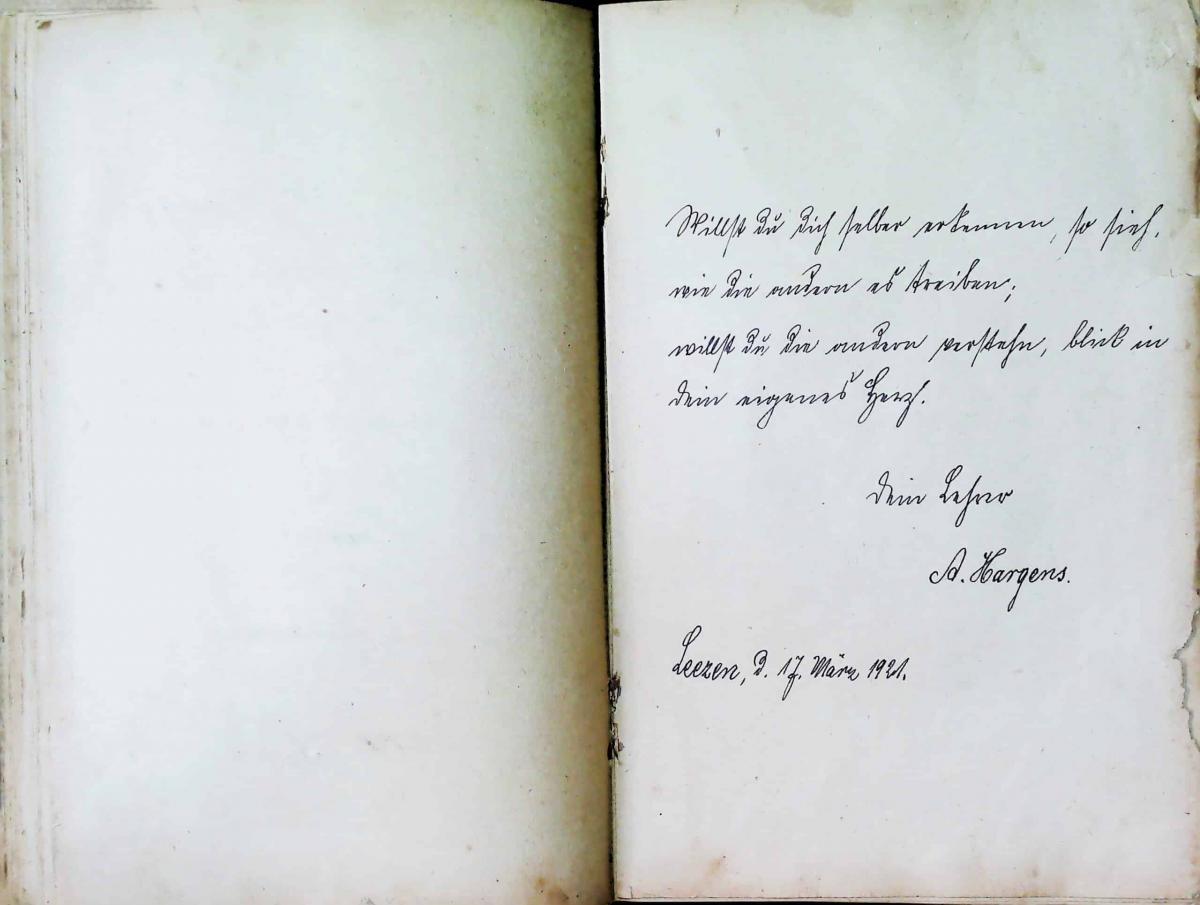 Willst du dich selber erkennen, so sieh,
wie die andern es treiben;
willst du die andern verstehn, blick in
dein eigenes Herz.
Dein Lehrer
A. Hargens.
Leezen, d. 17. März 1921.